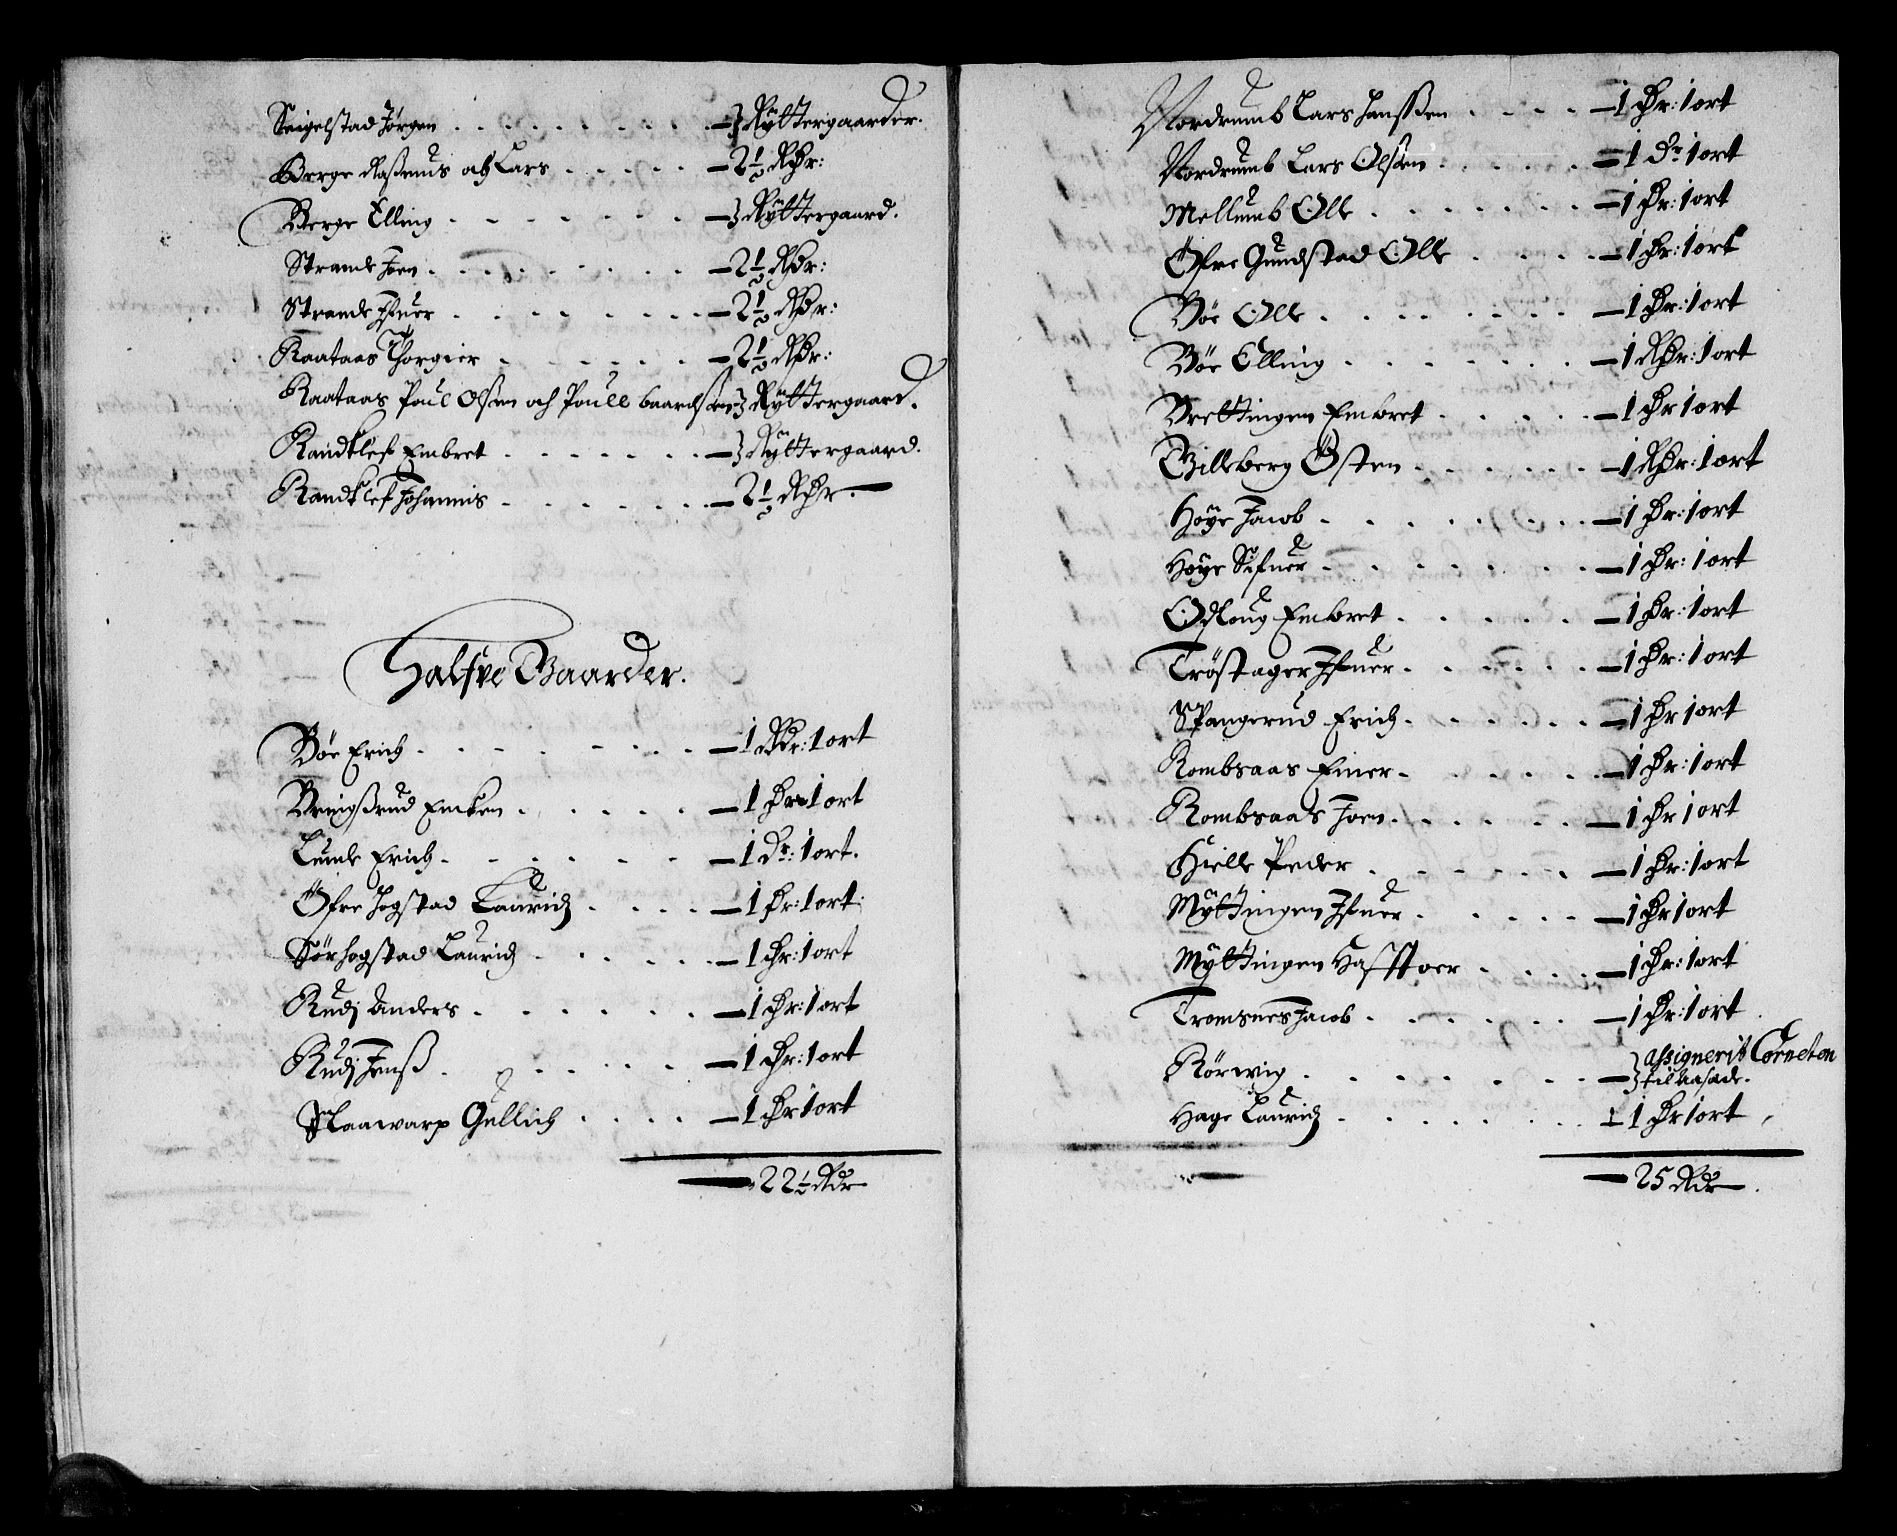 Seigelstad Jørgen . . . . . . . . . — } Rÿttergaarder.
Berge Rasmus och Lars . . . . . — 2½ Rdr:
Berge Elling . . . . . . . — } Rÿttergaard.
Strande Joen . . . . . . . . . — 2½ Rdr:
Strande Ifuer . . . . . . . . — 2½ Rdr:
Raataas Thorgier . . . . . . — 2½ Rdr:
Raataas Poul Olsen och Poull baardsen } Rÿttergaard.
Randklef Embret . . . . . . . — } Rÿttergaard.
Randklef Johannis . . . . . . . — 2½ Rdr. —
Halfve Gaarder.
Böe Erich . . . . . . . . — 1 Rdr: 1 ort
Bringsrud Emken . . . . . — 1 dr 1 ort
Lunde Erich . . . . . . — 1 Dr: 1 ort.
Öfre Hogstad Lauridz . . . . — 1 dr: 1 ort:
Sörhogstad Lauridz . . . . . — 1 dr: 1 ort
Rudj Anders . . . . . . — 1 dr: 1 ort
Rudj Jenß . . . . . . . — 1 dr: 1 ort
Slaawarp Gullich . . . . — 1 dr 1 ort
— 22½ Rdr
Nordrumb Lars Hanssen . . . . — 1 dr: 1 ort
Nordrumb Lars Olsen . . . . . — 1 Dr 1 ort
Mellumb Olle . . . . . . . — 1 dr: 1 ort
Öfre Gundstad Olle . . . . — 1 dr: 1 ort
Böe Olle . . . . . . . — 1 dr: 1 ort
Böe Elling . . . . . . . — 1 Rdr: 1 ort
Brettingen Embret . . . . . — 1 dr 1 ort
Gilleberg Östen . . . . . . — 1 Rdr: 1 ort
Höÿe Jacob . . . . . . . — 1 dr: 1 ort
Höye Sifuer . . . . . . . — 1 dr: 1 ort
Odloug Embret . . . . . — 1 dr: 1 ort
Tröstager Ifuer . . . . . . — 1 dr: 1 ort
Spangerud Erich . . . . . . — 1 dr 1 ort
Rombsaas Einer . . . . . . — 1 dr: 1 ort
Rombsaas Joen . . . . . . — 1 dr 1 ort
Hielle Peder . . . . . . — 1 dr: 1 ort
Mÿttingen Ifuer . . . . . . — 1 dr 1 ort
Mÿttingen Haffttoer . . . . — 1 dr: 1 ort
Tromsnes Jacob . . . . . . — 1 dr: 1 ort
Rörwig . . . . . . . — } assignerit Corneten
til aasäde.
Hage Lauridz . . . . . . . 1 dr 1 ort
— 25 Rdr —